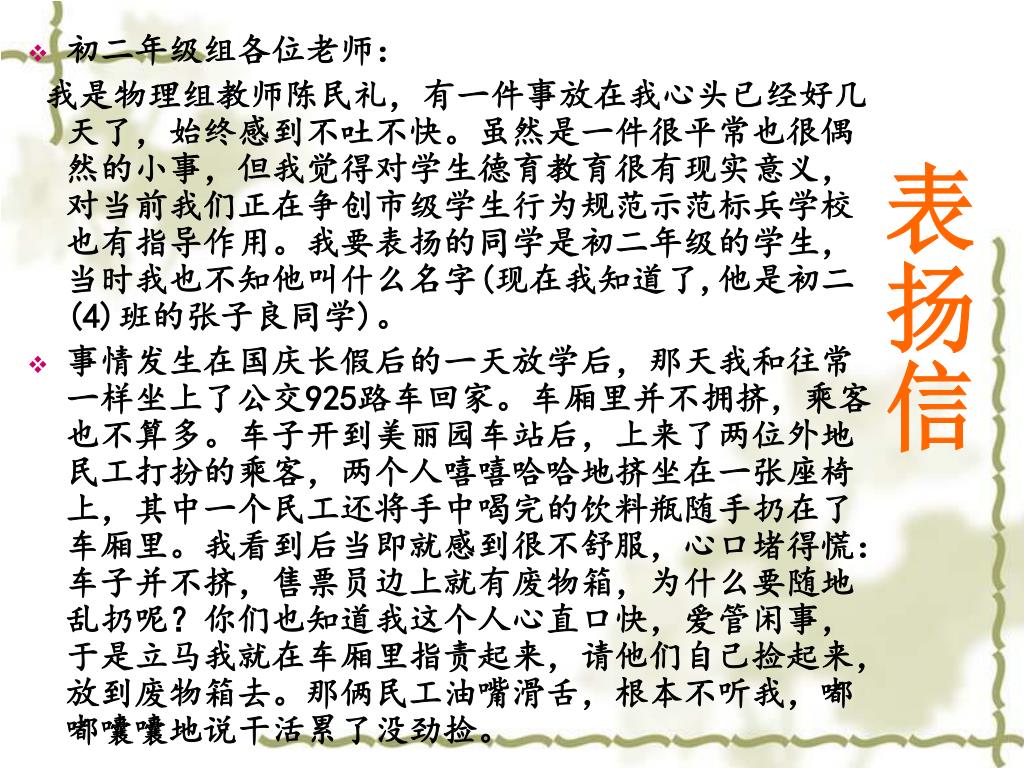 初二年级组各位老师：
我是物理组教师陈民礼，有一件事放在我心头已经好几
天了，始终感到不吐不快。虽然是一件很平常也很偶
然的小事，但我觉得对学生德育教育很有现实意义，
对当前我们正在争创市级学生行为规范示范标兵学校
也有指导作用。我要表扬的同学是初二年级的学生，
当时我也不知他叫什么名字(现在我知道了,他是初二
(4)班的张子良同学)。
事情发生在国庆长假后的一天放学后，那天我和往常
一样坐上了公交925路车回家。车厢里并不拥挤，乘客
也不算多。车子开到美丽园车站后，上来了两位外地
民工打扮的乘客，两个人嘻嘻哈哈地挤坐在一张座椅
上，其中一个民工还将手中喝完的饮料瓶随手扔在了
车厢里。我看到后当即就感到很不舒服，心口堵得慌：
车子并不挤，售票员边上就有废物箱，为什么要随地
乱扔呢？你们也知道我这个人心直口快，爱管闲事，
于是立马我就在车厢里指责起来，请他们自己捡起来，
放到废物箱去。那俩民工油嘴滑舌，根本不听我，嘟
嘟囔囔地说干活累了没劲捡。
表扬信